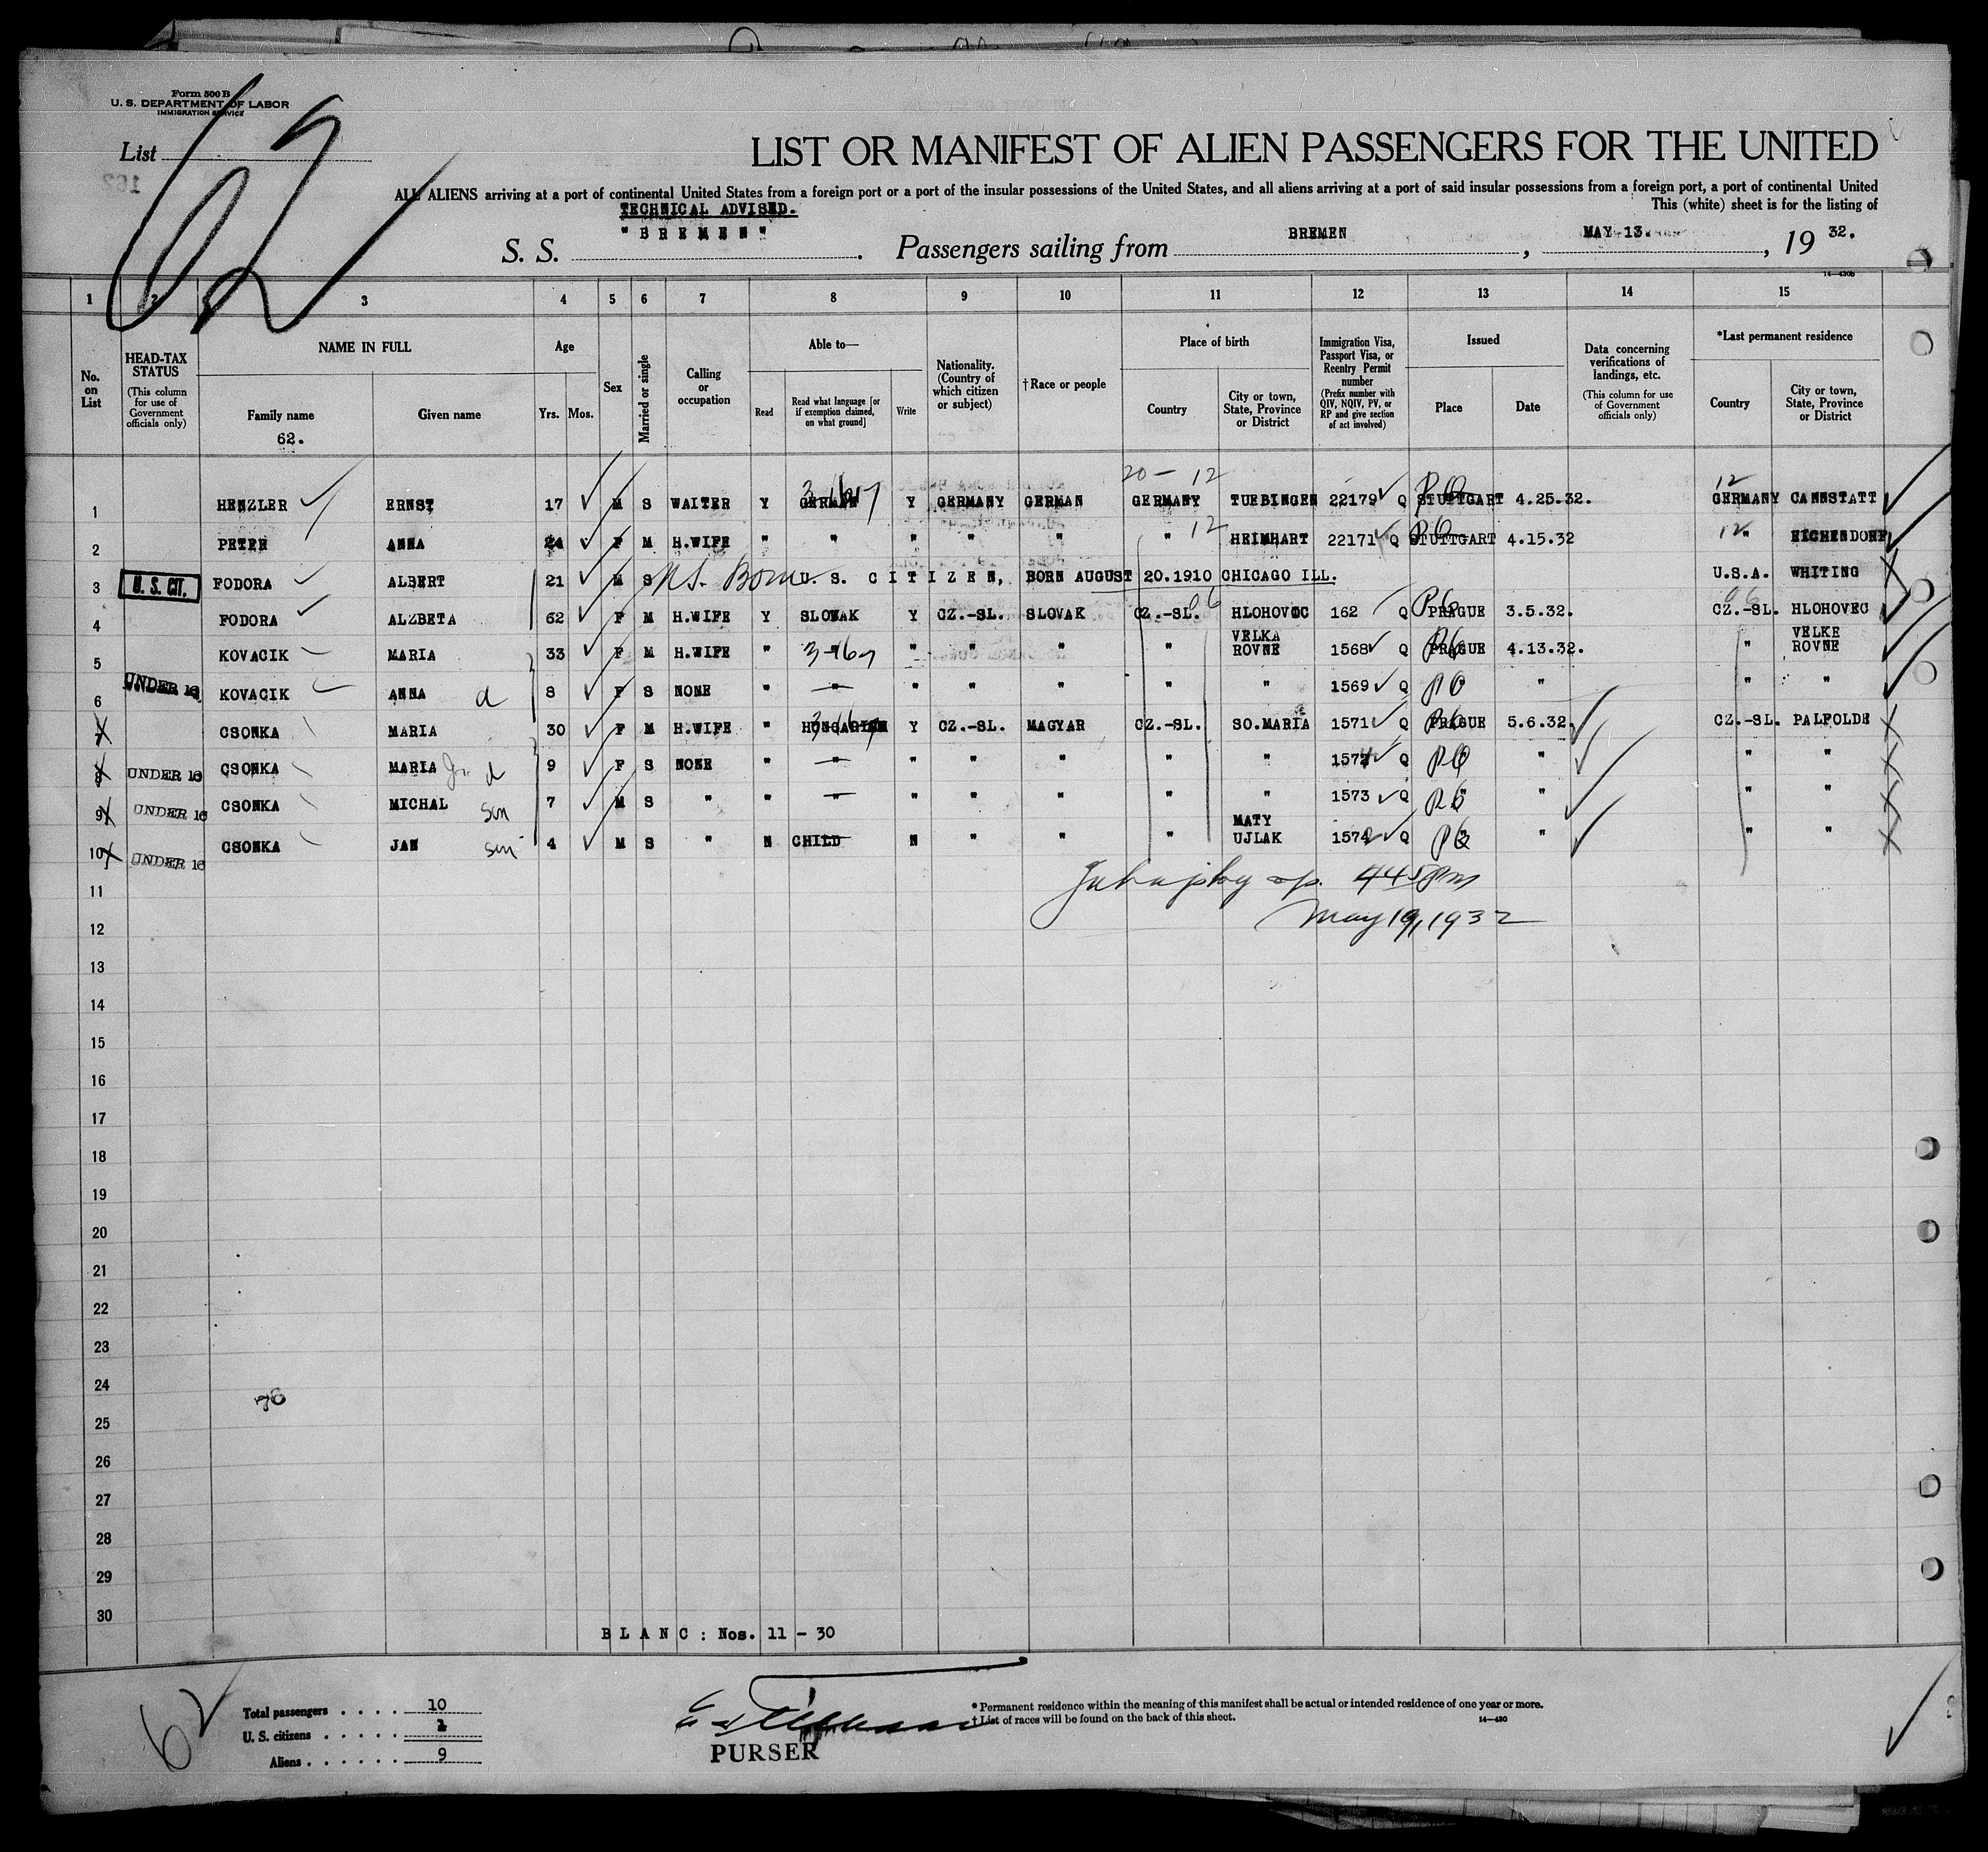 Form 500 B
U. S. DEPARTMENT OF LABOR
IMMIGRATION SERVICE
List
62
LIST OR MANIFEST OF ALIEN PASSENGERS FOR THE UNITED
ALL ALIENS arriving at a port of continental United States from a foreign port or a port of the insular possessions of the United States, and all aliens arriving at a port of said insular possessions from a foreign port, a port of continental United
This (white) sheet is for the listing of
TECHNICAL ADVISED.
S. S. "BREMEN". Passengers sailing from BREMEN, MAY 13. , 19 32.
14—430b
1 2 3 4 5 6 7 8 9 10 11 12 13 14 15
No. on List
HEAD-TAX STATUS (This column for use of Government officials only)
NAME IN FULL
Family name
62.
Given name
Age
Yrs. Mos.
Sex
Married or single
Calling or occupation
Able to—
Read
Read what language [or if exemption claimed, on what ground]
Write
Nationality. (Country of which citizen or subject)
†Race or people
Place of birth
Country
City or town, State, Province or District
Immigration Visa, Passport Visa, or Reentry Permit number (Prefix number with QIV, NQIV, PV, or RP and give section of act involved)
Issued
Place
Date
Data concerning verifications of landings, etc. (This column for use of Government officials only)
*Last permanent residence
Country
City or town, State, Province or District
20 — 12 12
1 HENZLER ERNST 17 M S WAITER Y GERMAN Y GERMANY GERMAN GERMANY TUEBINGEN 22179 Q STUTTGART 4.25.32. GERMANY CANNSTATT
12 12
2 PETER ANNA 24 F M H.WIFE " " " " " " HEIMHART 22171 Q STUTTGART 4.15.32 " EICHENDORF
3 U. S. CIT. FODORA ALBERT 21 M S U.S. Born U. S. CITIZEN, BORN AUGUST 20.1910 CHICAGO ILL. U.S.A. WHITING
06 06
4 FODORA ALZBETA 62 F M H.WIFE Y SLOVAK Y CZ.-SL. SLOVAK CZ.-SL. HLOHOVEC 162 Q PRAGUE 3.5.32. CZ.-SL. HLOHOVEC
5 KOVACIK MARIA 33 F M H.WIFE " " " " " " VELKA ROVNE 1568 Q PRAGUE 4.13.32. " VELKE ROVNE
6 UNDER 16 KOVACIK ANNA d 8 F S NONE " " " " " " " 1569 Q " " " "
7 CSONKA MARIA 30 F M H.WIFE " HUNGARIAN Y CZ.-SL. MAGYAR CZ.-SL. SO.MARIA 1571 Q PRAGUE 5.6.32. CZ.-SL. PALFOLDE
8 UNDER 16 CSONKA MARIA Jr. d 9 F S NONE " " " " " " " 1572 Q " " " "
9 UNDER 16 CSONKA MICHAL son 7 M S " " " " " " " " 1573 Q " " " "
10 UNDER 16 CSONKA JAN son 4 M S " N CHILD N " " " MATY UJLAK 1574 Q " " " "
11
445 Pm
12
May 19, 1932
13
14
15
16
17
18
19
20
21
22
23
24
76
25
26
27
28
29
30
BLANC: Nos. 11 - 30
62
Total passengers . . . . 10
U. S. citizens . . . . . 1
Aliens . . . . . . 9
PURSER
* Permanent residence within the meaning of this manifest shall be actual or intended residence of one year or more.
† List of races will be found on the back of this sheet.
14—430